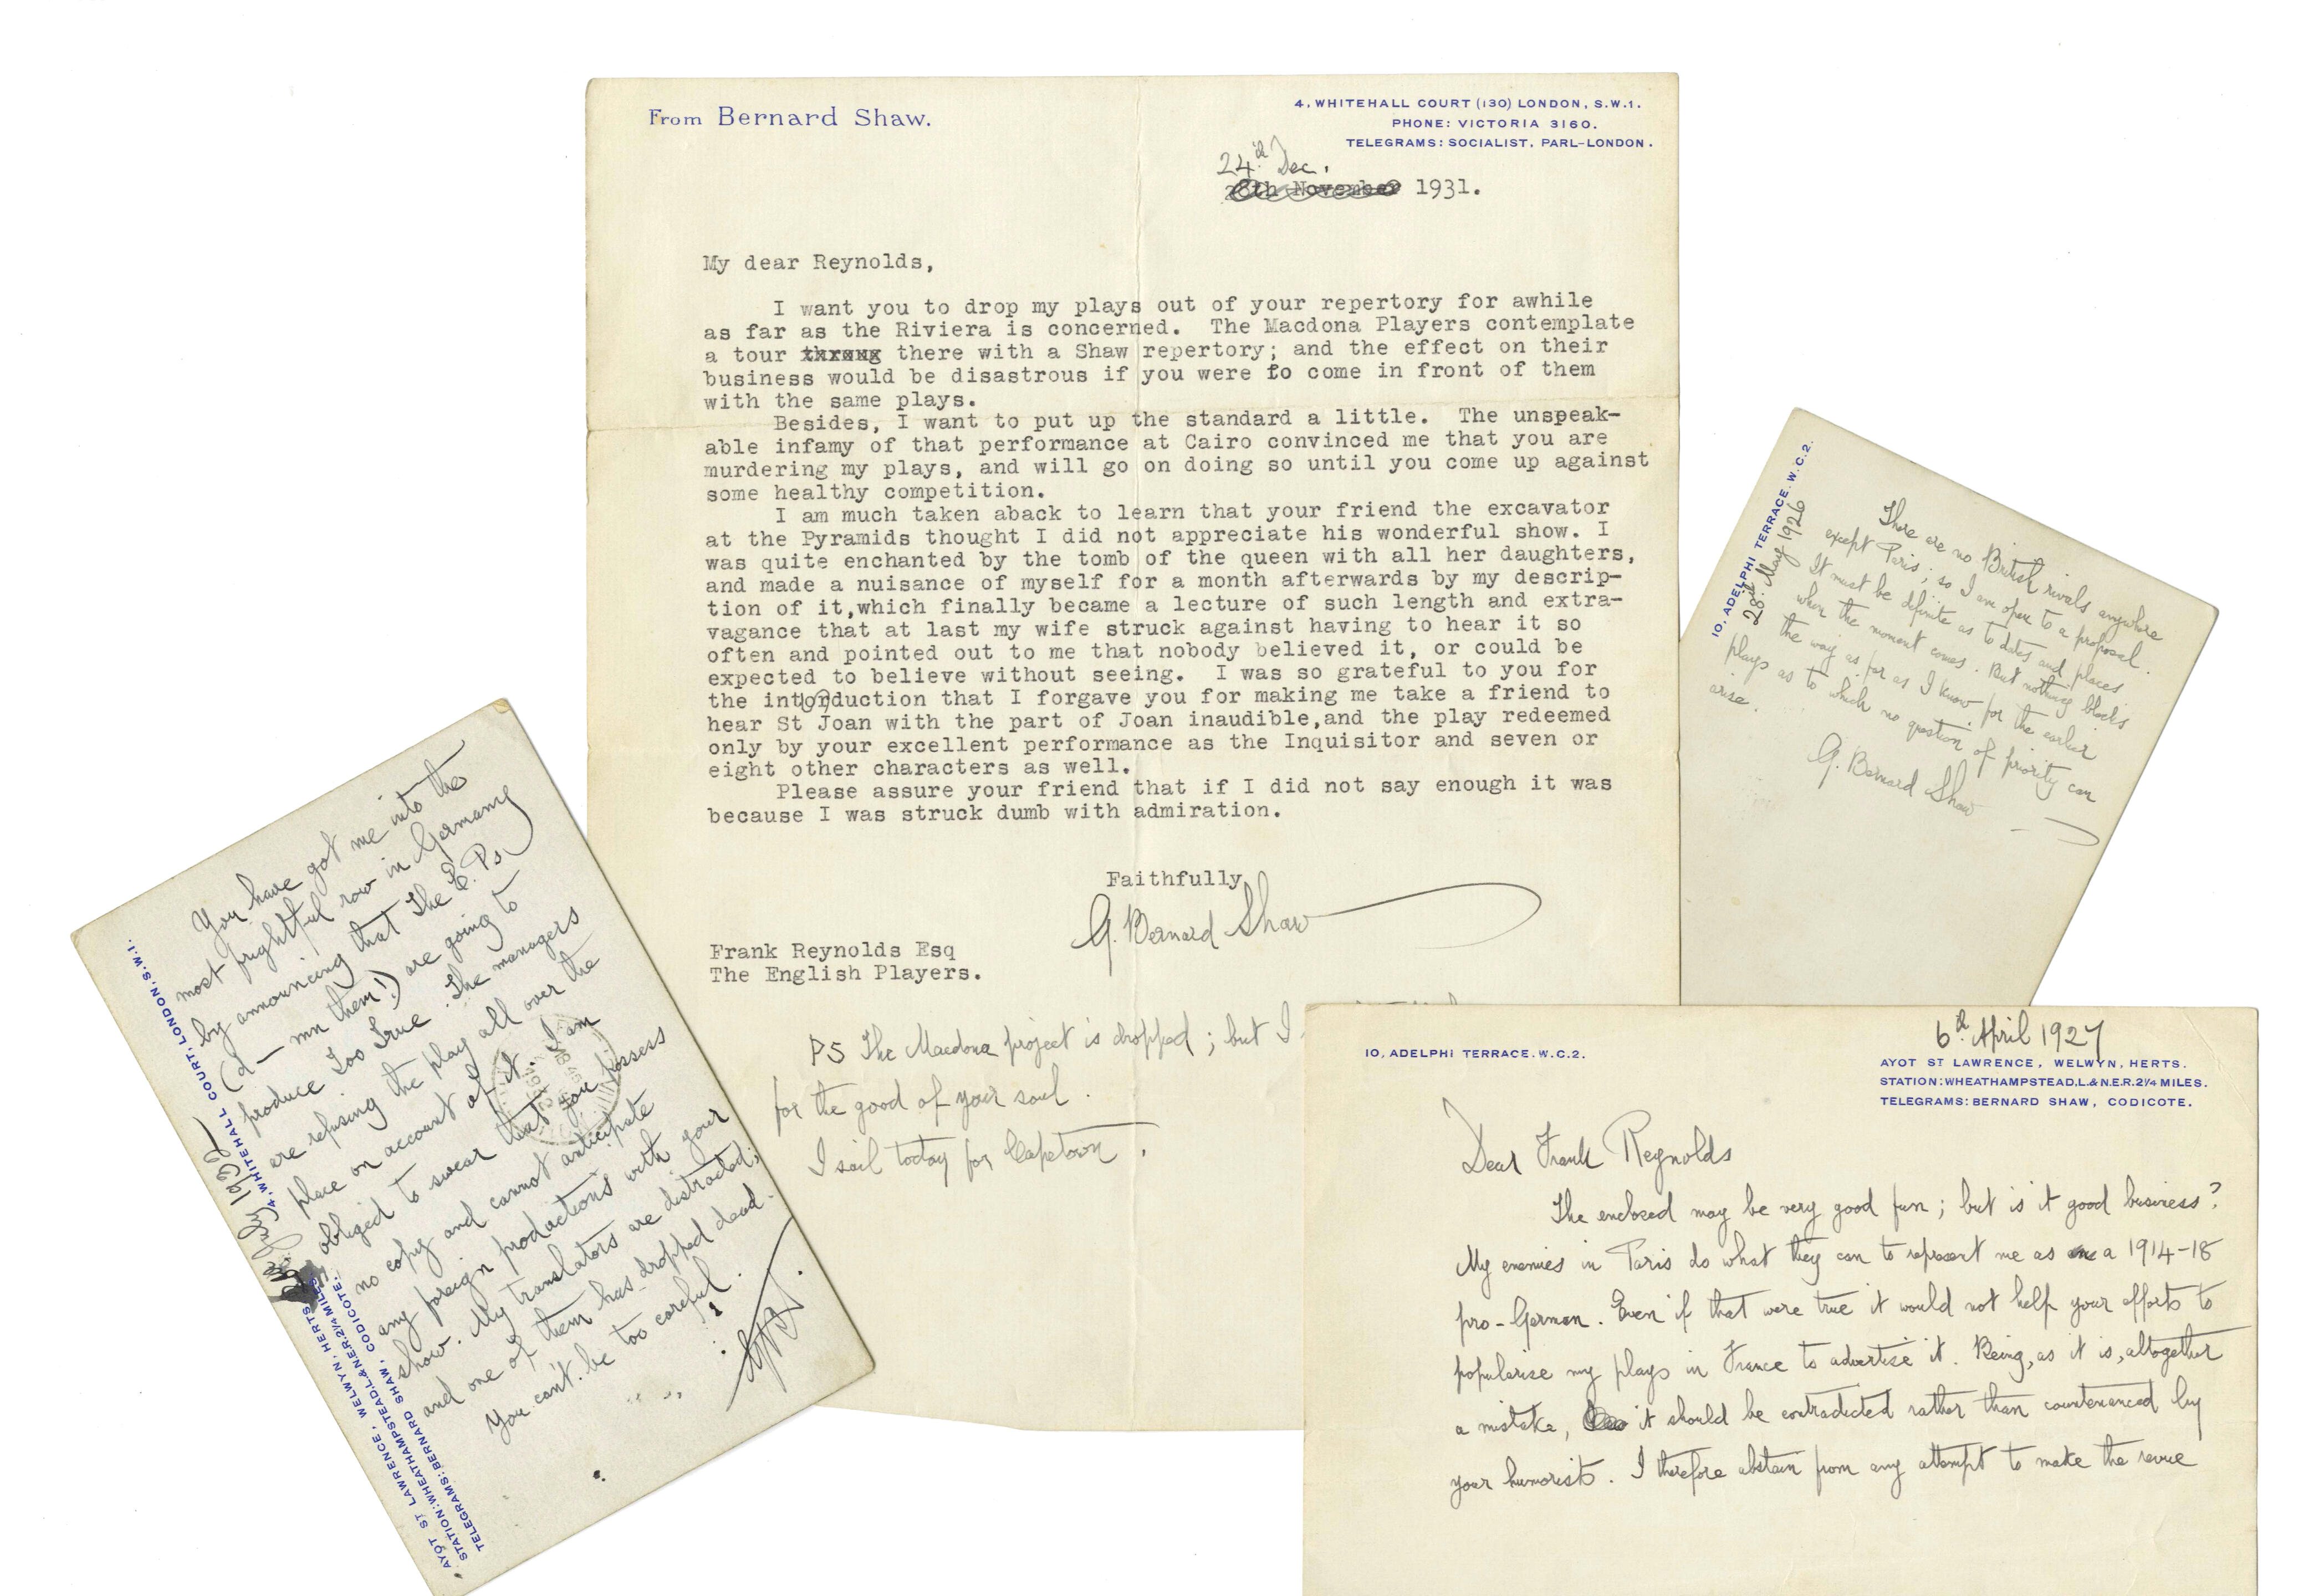 From Bernard Shaw.
4, WHITEHALL COURT (130) LONDON, S.W.1.
PHONE: VICTORIA 3160.
TELEGRAMS: SOCIALIST, PARL-LONDON.
24th Dec.
28th November 1931.
My dear Reynolds,
I want you to drop my plays out of your repertory for awhile
as far as the Riviera is concerned. The Macdona Players contemplate
a tour there with a Shaw repertory; and the effect on their
business would be disastrous if you were to come in front of them
with the same plays.
Besides, I want to put up the standard a little. The unspeak-
able infamy of that performance at Cairo convinced me that you are
murdering my plays, and will go on doing so until you come up against
some healthy competition.
I am much taken aback to learn that your friend the excavator
at the Pyramids thought I did not appreciate his wonderful show. I
was quite enchanted by the tomb of the queen with all her daughters,
and made a nuisance of myself for a month afterwards by my descrip-
tion of it,which finally became a lecture of such length and extra-
vagance that at last my wife struck against having to hear it so
often and pointed out to me that nobody believed it, or could be
expected to believe without seeing. I was so grateful to you for
the intorduction that I forgave you for making me take a friend to
hear St Joan with the part of Joan inaudible,and the play redeemed
only by your excellent performance as the Inquisitor and seven or
eight other characters as well.
Please assure your friend that if I did not say enough it was
because I was struck dumb with admiration.
Faithfully
G. Bernard Shaw
Frank Reynolds Esq
The English Players.
PS The Macdona project is dropped; but I
for the good of your soul.
I sail today for Capetown.
4, WHITEHALL COURT, LONDON, S.W.1.
July 1932
AYOT ST LAWRENCE, WELWYN, HERTS.
STATION: WHEATHAMPSTEAD, L.& N.E.R. 2¼ MILES.
TELEGRAMS: BERNARD SHAW, CODICOTE.
You have got me into the
most frightful row in Germany
by announcing that the E.Ps.
(d—mn them!) are going to
produce Too True. The managers
are refusing the play all over the
place on account of it. I am
obliged to swear that you possess
no copy and cannot anticipate
any foreign productions with your
show. My translators are distracted;
and one of them has dropped dead.
You can't be too careful.
G.B.S.
10, ADELPHI TERRACE. W.C.2.
28th May 1926
There are no British rivals anywhere
except Paris; so I am open to a proposal.
It must be definite as to dates and places
when the moment comes. But nothing blocks
the way as far as I know for the earlier
plays as to which no question of priority can
arise.
G. Bernard Shaw
10, ADELPHI TERRACE. W.C.2.
6th April 1927
AYOT ST LAWRENCE, WELWYN, HERTS.
STATION: WHEATHAMPSTEAD, L.& N.E.R. 2¼ MILES.
TELEGRAMS: BERNARD SHAW, CODICOTE.
Dear Frank Reynolds
The enclosed may be very good fun; but is it good business?
My enemies in Paris do what they can to represent me as a 1914-18
pro-German. Even if that were true it would not help your efforts to
popularise my plays in France to advertise it. Being, as it is, altogether
a mistake, it should be contradicted rather than countenanced by
your humorists. I therefore abstain from any attempt to make the revue